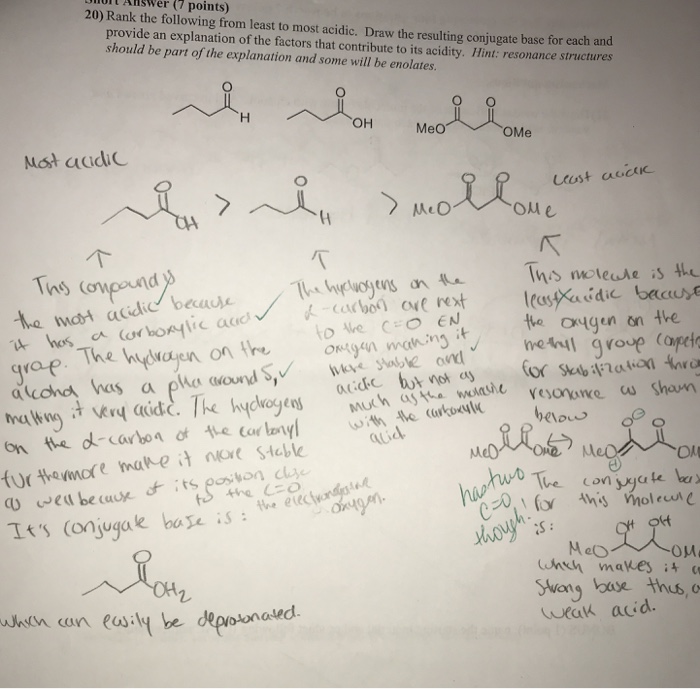 Short Answer (7 points)
20) Rank the following from least to most acidic. Draw the resulting conjugate base for each and
provide an explanation of the factors that contribute to its acidity. Hint: resonance structures
should be part of the explanation and some will be enolates.
O
H
O
OH
O O
MeO OMe
Most acidic
least acidic
O
OH
>
O
H
>
O O
MeO OMe
This compound is
the most acidic because
it has a carboxylic acid
group. The hydrogen on the
alcohol has a pka around 5,
making it very acidic. The hydrogens
on the α-carbon of the carbonyl
furthermore make it more stable
as well because of its position close
to the C=O
the electronegative
oxygen.
It's conjugate base is:
O
OH2
which can easily be deprotonated.
The hydrogens on the
α-carbon are next
to the C=O EN
oxygen making it
more stable and
acidic but not as
much as the
with the carboxylic
acid
This molecule is the
least acidic because
the oxygen on the
methyl group
for stabilization
resonance as shown
below
MeO OMe
MeO
has two
C=O,
though.
The conjugate
for this molecule
is:
OH OH
MeO
which makes it a
strong base thus, a
weak acid.